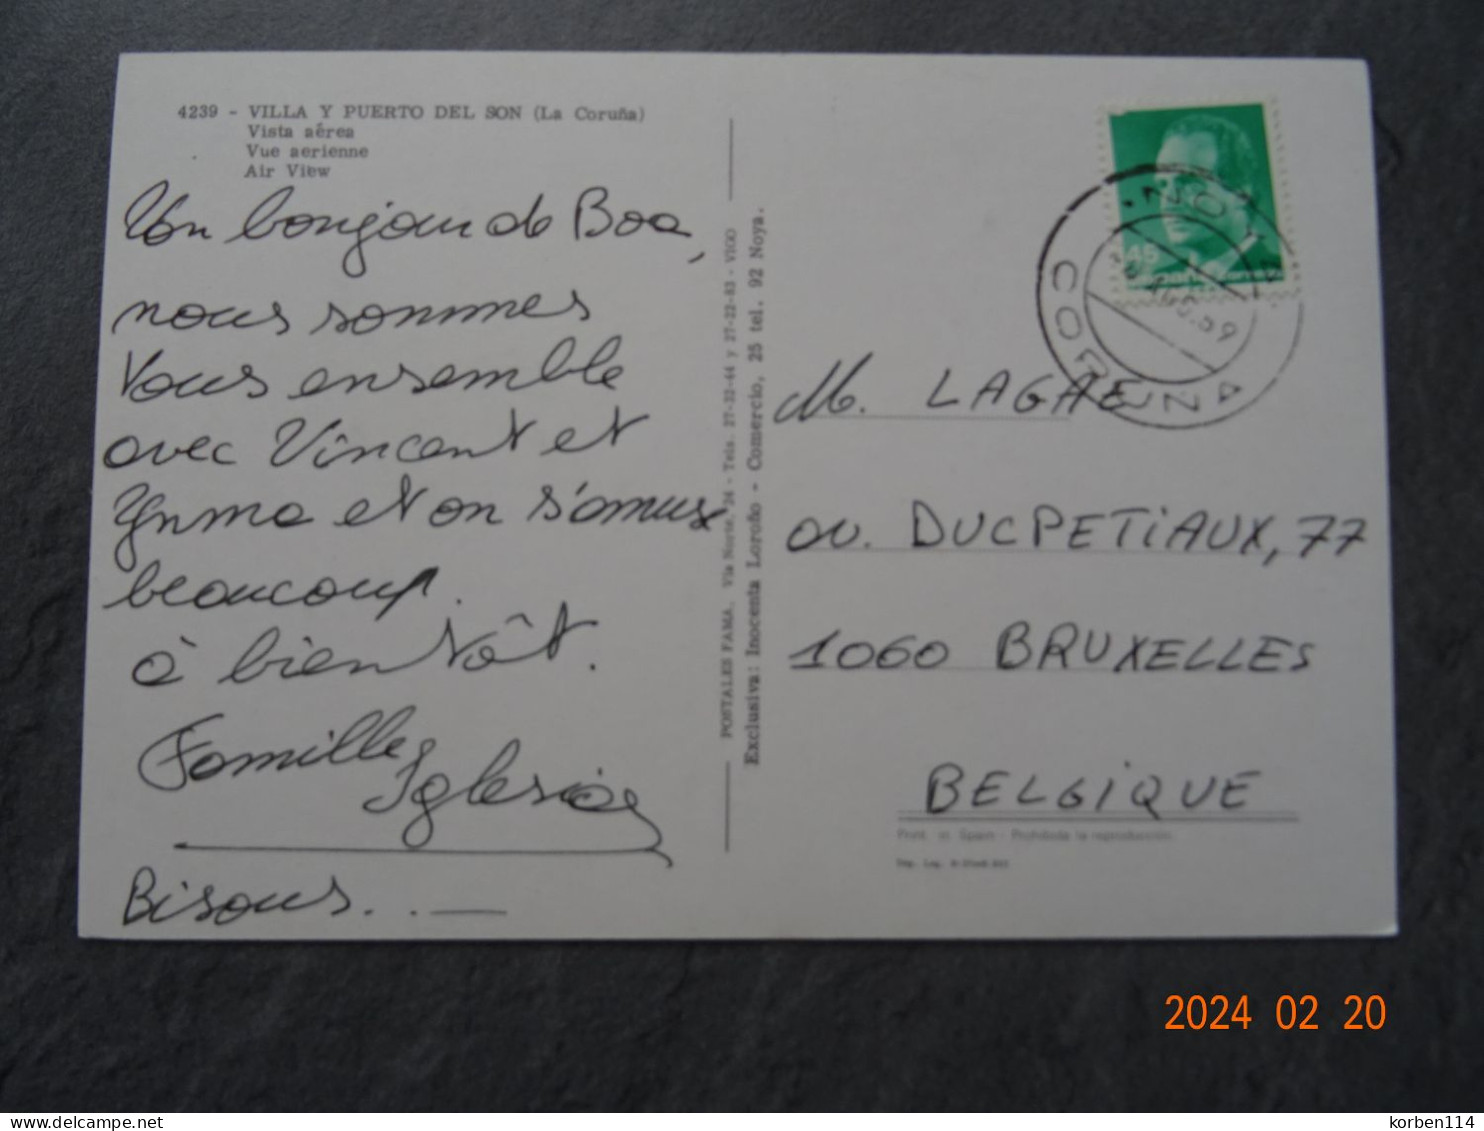 4239 - VILLA Y PUERTO DEL SON (La Coruña)
Vista aérea
Vue aerienne
Air View
Un bonjour de Boa,
nous sommes
Vous ensemble
avec Vincent et
Ynma et on s'amuse
beaucoup.
à bientôt.
Famille
Iglesias
Bisous...
POSTALES FAMA. Vía Norte, 24 - Tels. 27-32-44 y 27-22-83 - VIGO
Exclusiva: Inocenta Loroño - Comercio, 25 tel. 92 Noya.
45
CORUÑA
M. LAGAE
av. DUCPETIAUX, 77
1060 BRUXELLES
BELGIQUE
Print. in Spain - Prohibida la reproducción
2024 02 20
korben114